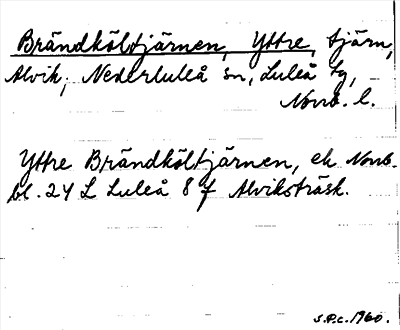 Brändköltjärnen, Yttre, tjärn,
Alvik, Nederluleå sn, Luleå tg,
Norrb. l.
Yttre Brändköltjärnen, ek Norrb.
bl. 24 L Luleå 8 f Alviksträsk.
S.P.C. 1960.